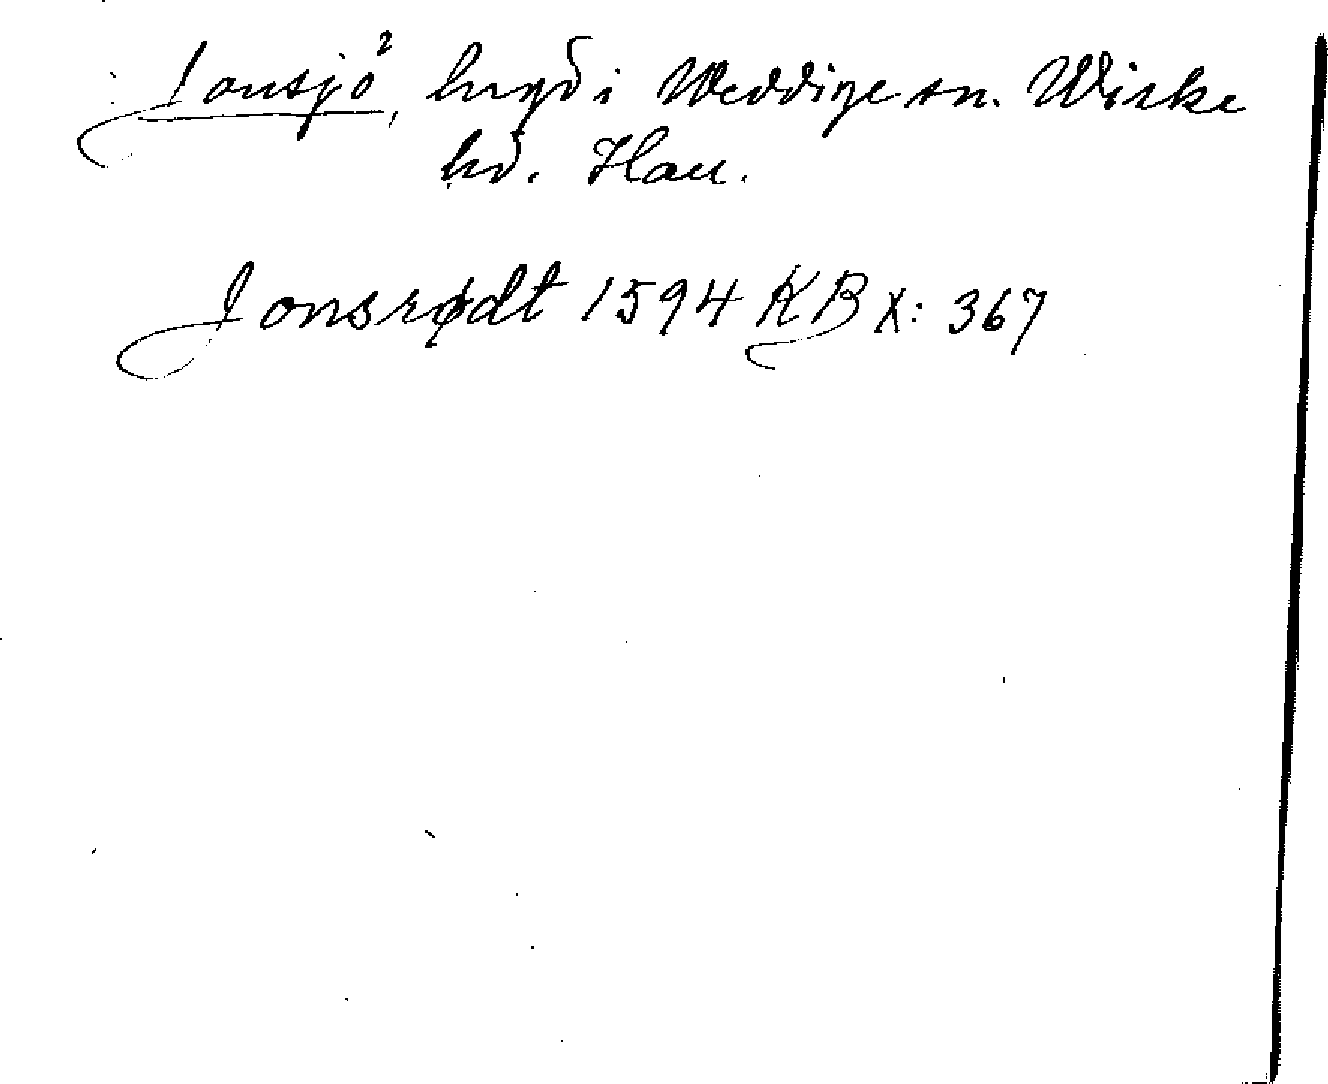 Jonsjö, bygd i Weddige sn. Wiske
hd. Hall.
Jonsrødt 1594 KB X: 367